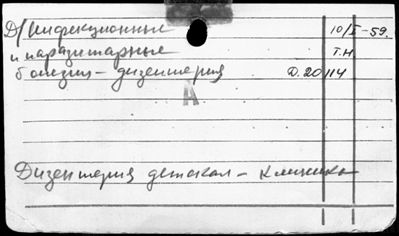 Д/Инфекционные 10/I-59.
и паразитарные Т.Н
болезни - дизентерия О.20114
А
Дизентерия детская - клиника